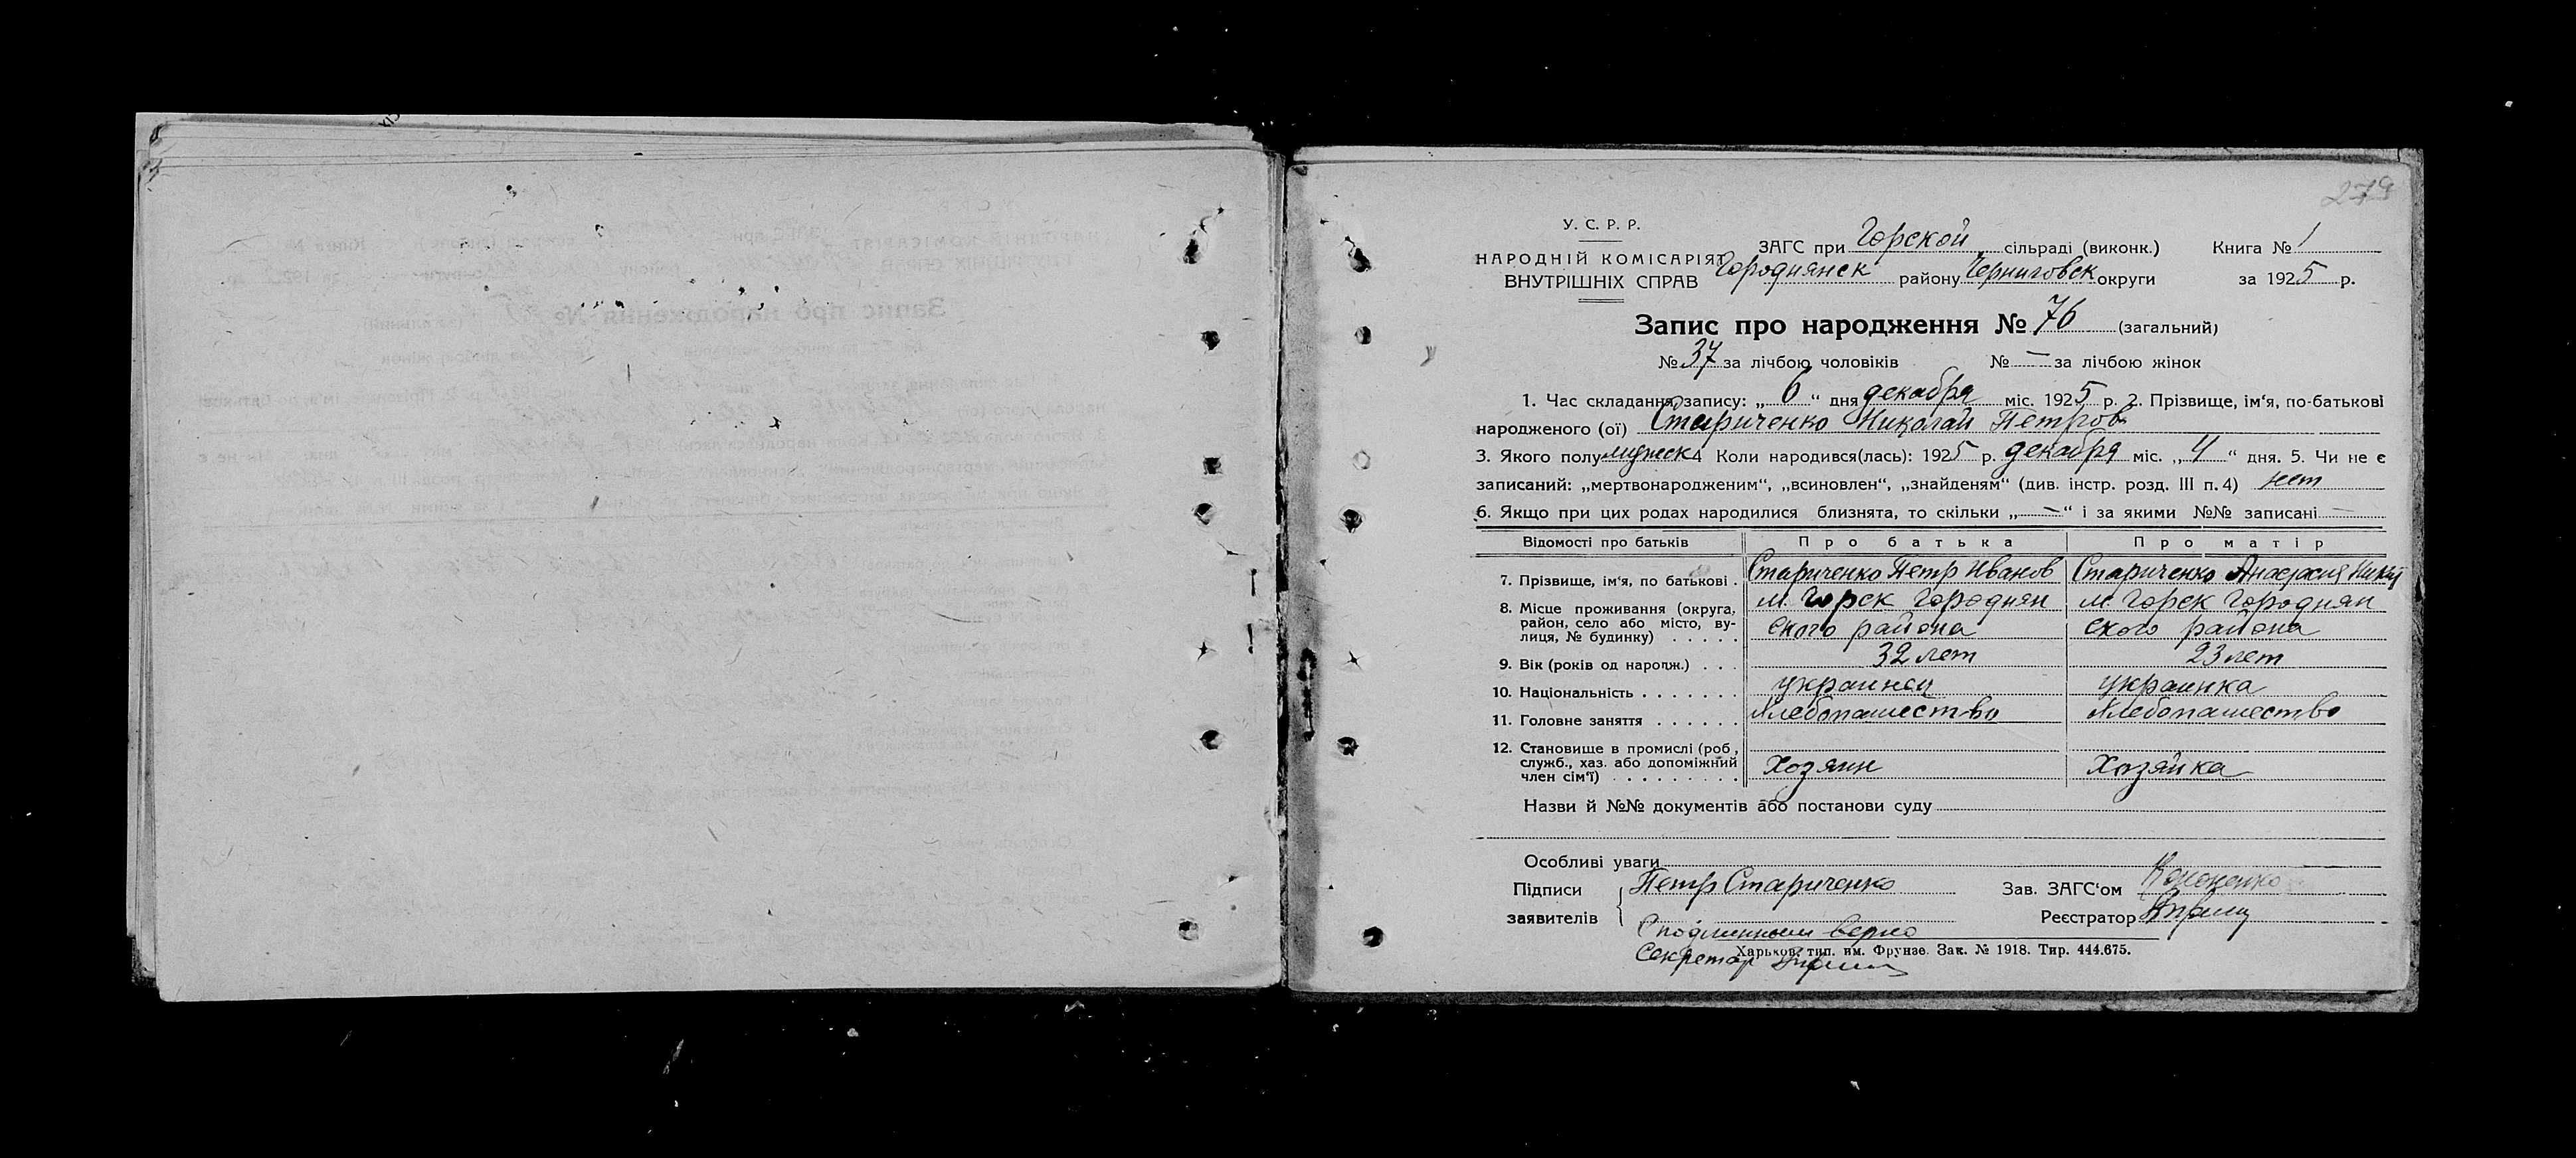 279
У. С. Р. Р.
НАРОДНІЙ КОМІСАРІЯТ
ВНУТРІШНІХ СПРАВ
ЗАГС при Горской сільраді (виконк.) Книга № 1
Городнянск району Черниговск округи за 1925 р.
Запис про народження № 76 (загальний)
№ 37 за лічбою чоловіків № — за лічбою жінок
1. Час складання запису: „ 6 “ дня декабря міс. 1925 р. 2. Прізвище, ім‘я, по-батькові
народженого (ої) Стариченко Николай Петров
3. Якого полу мужск 4 Коли народився(лась): 1925 р. декабря міс. „ 4 “ дня. 5. Чи не є
записаний: „мертвонародженим“, „всиновлен“, „знайденям“ (див. інстр. розд. III п. 4) нет
6. Якщо при цих родах народилися близнята, то скільки „ — “ і за якими №№ записані —
Відомості про батьків Про батька Про матір
7. Прізвище, ім‘я, по батькові . Стариченко Петр Иванов Стариченко Анастасия
8. Місце проживання (округа, район, село або місто, вулиця, № будинку) . . . . . м. Горск Городнян м. Горск Городнян
ского района ского района
9. Вік (років од народж.) . . . 32 лет 23 лет
10. Національність . . . . . . . украинец украинка
11. Головне заняття . . . . . . Хлебопашество Хлебопашество
12. Становище в промислі (роб, служб., хаз. або допоміжний член сім‘ї) . . . . . . . . . Хозяин Хозяйка
Назви й №№ документів або постанови суду
Особливі уваги
Підписи заявителів Петр Стариченко Зав. ЗАГС‘ом Кононенко
Реєстратор
С подлинным верно
Секретар
Харьков, тип. им. Фрунзе. Зак. № 1918. Тир. 444.675.